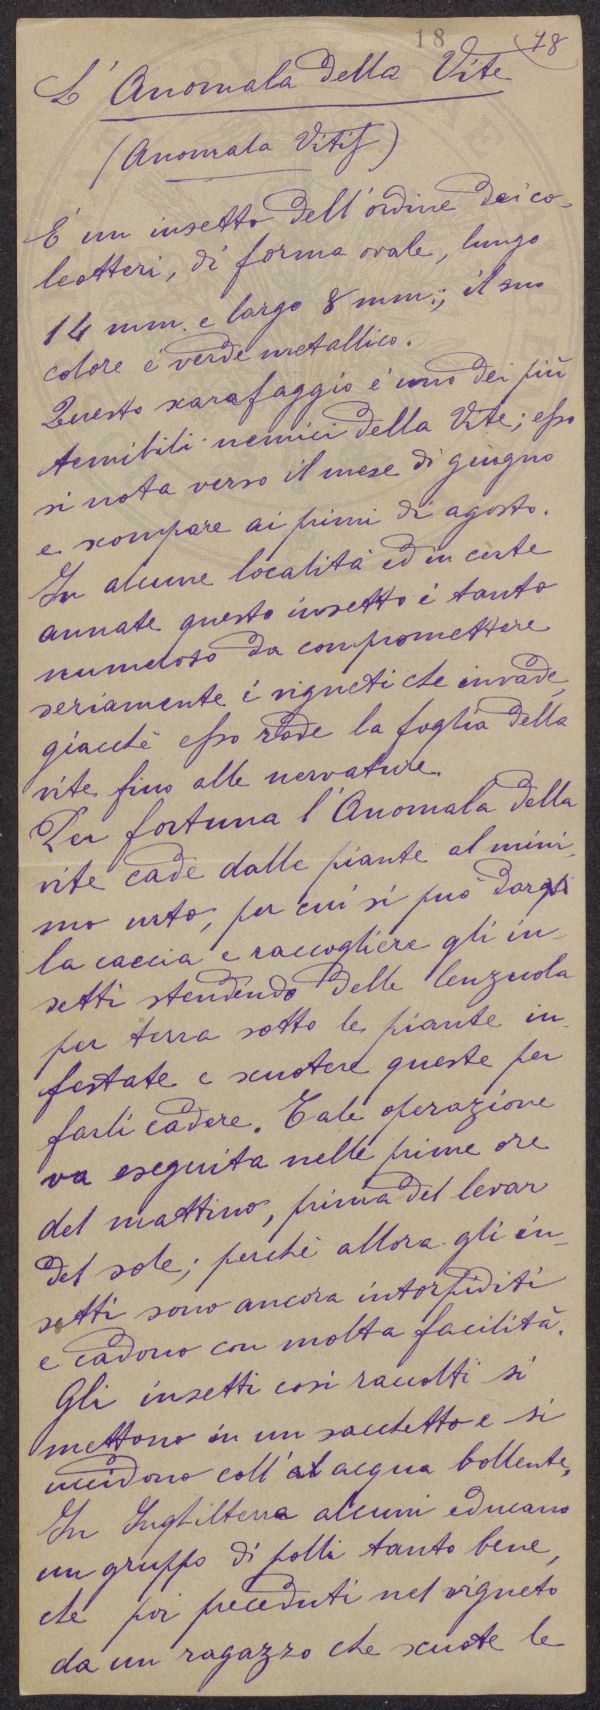 18 78
L' Anomala della Vite
(Anomala Vitis)
É un insetto dell'ordine dei co-
leotteri, di forma ovale, lungo
14 mm. e largo 8 mm.; il suo
colore é verde metallico.
Questo scarafaggio é uno dei più
temibili nemici della Vite; esso
si nota verso il mese di giugno
e scompare ai primi di agosto.
In alcune località ed in certe
annate questo insetto é tanto
numeroso da compromettere
seriamente i vigneti che invade,
giacché esso rode la foglia della
vite fino alle nervature.
Per fortuna l'Anomala della
vite cade dalle piante al mini-
mo urto, per cui si può dargli
la caccia e raccogliere gli in-
setti stendendo delle lenzuola
per terra sotto le piante in-
festate e scuotere queste per
farli cadere. Tale operazione
va eseguita nelle prime ore
del mattino, prima del levar
del sole; perché allora gli in-
setti sono ancora intorpiditi
e cadono con molta facilità.
Gli insetti cosí raccolti si
mettono in un sacchetto e si
uccidono coll' acqua bollente.
In Inghilterra alcuni educano
un gruppo di polli tanto bene,
che poi preceduti nel vigneto
da un ragazzo che scuote le